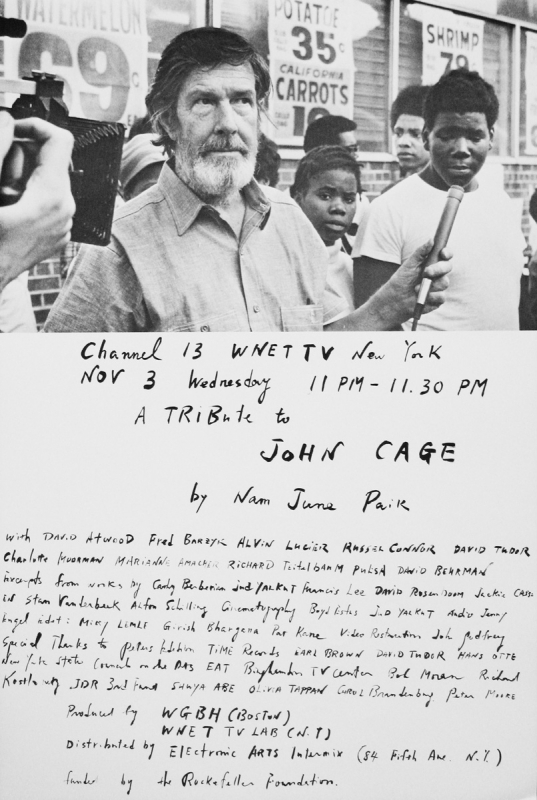 WATERMELON
69¢
POTATOE
35¢
CALIFORNIA
CARROTS
SHRIMP
79
Channel 13 WNET TV New York
NOV 3 Wednesday 11 PM - 11.30 PM
A TRiBute to
JOHN CAGE
by Nam June Paik
with DAViD AtwOOD Fred BARZYK ALViN LUCiER RUSSEL CONNOR DAViD TUDOR
Charlotte MOORMAN MARIANNE AMACHER RiCHARD TEitelBAUM PULSA DAViD BEHRMAN
Excerpts from works by Cathy Berberian Jud YALKUT Francis Lee DAViD Rosenboom Jackie CASS
Stan Vanderbeek Alton Schilling Cinematography Boyd Estus JUD YALKUT Audio Jenny
Engel edit: Girish Bhargava Pat Kane Video Restoration John Godfrey
Special Thanks to Peters Edition TiME Records EARL BROWN DAViD TUDOR HANS OTTE
New York State Council on the Arts EAT Binghamton TV center Bob Moran Richard
Kostlanetz JDR 3rd Fund SHUYA ABE OLiViA TAPPAN Carol Brandenburg Peter MOORE
Produced by WGBH (BOSTON)
WNET TV LAB (N.Y)
Distributed by ElEctronic ARTS Intermix (84 Fifth Ave. N.Y.)
by the Rockefeller Foundation.